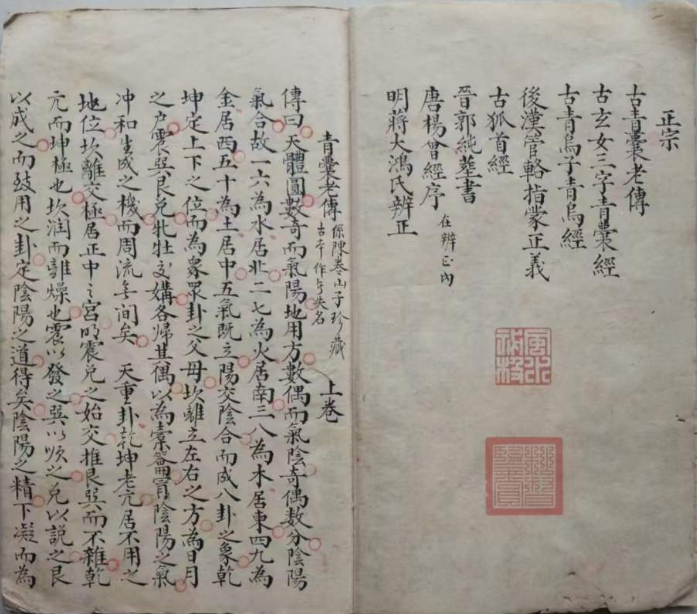 正宗
古青囊老傳
古玄女三字青囊經
古青烏子青烏經
後漢管輅指蒙正義
古狐首經
晉郭純葬書
唐楊曾經序 在辨正內
明蔣大鴻氏辨正
青囊老傳 係陳巷山子珍藏 古本作者失名 上卷
傳曰天體圓數奇而氣陽地用方數偶而氣陰奇偶数分陰陽
氣合故一六為水居北二七為火居南三八為木居東四九為
金居西五十為土居中五氣既立陽交陰合而成八卦之象乾
坤定上下之位而為衆眾卦之父母坎離立左右之方為日月
之戶震巽艮兌牝牡交媾各歸其偶以為橐籥冒陰陽之氣
冲和生成之機而周流無间矣 天重卦乾坤老亢居不用之
地位坎離交極居正中之宮明震兌之始交推艮巽而不雜乾
亢而坤極也坎润而離燥也震以發之巽以順之兌以說之艮
以成之而致用之卦定陰陽之道得矣陰陽之精下凝而為